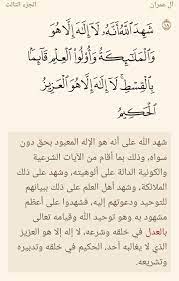 آل عمران
الجزء الثالث
١٨
شَهِدَ ٱللَّهُ أَنَّهُۥ لَآ إِلَٰهَ إِلَّا هُوَ
وَٱلْمَلَٰٓئِكَةُ وَأُو۟لُوا۟ ٱلْعِلْمِ قَآئِمًۢا
بِٱلْقِسْطِ ۚ لَآ إِلَٰهَ إِلَّا هُوَ ٱلْعَزِيزُ
ٱلْحَكِيمُ
شهد الله على أنه هو الإله المعبود بحق دون
سواه، وذلك بما أقام من الآيات الشرعية
والكونية الدالة على ألوهيته، وشهد على ذلك
الملائكة، وشهد أهل العلم على ذلك ببيانهم
للتوحيد ودعوتهم إليه، فشهدوا على أعظم
مشهود به وهو توحيد الله وقيامه تعالى
بالعدل في خلقه وشرعه، لا إله إلا هو العزيز
الذي لا يغالبه أحد، الحكيم في خلقه وتدبيره
وتشريعه.